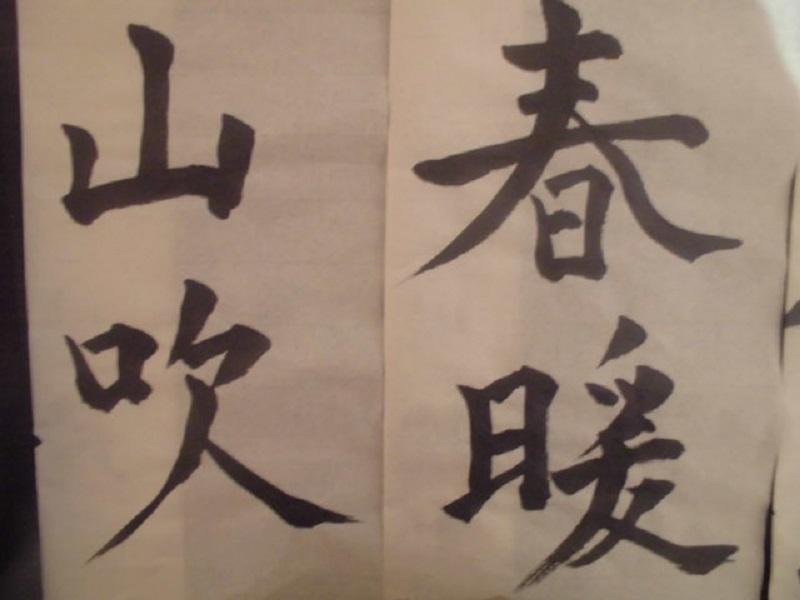 春暖
山吹